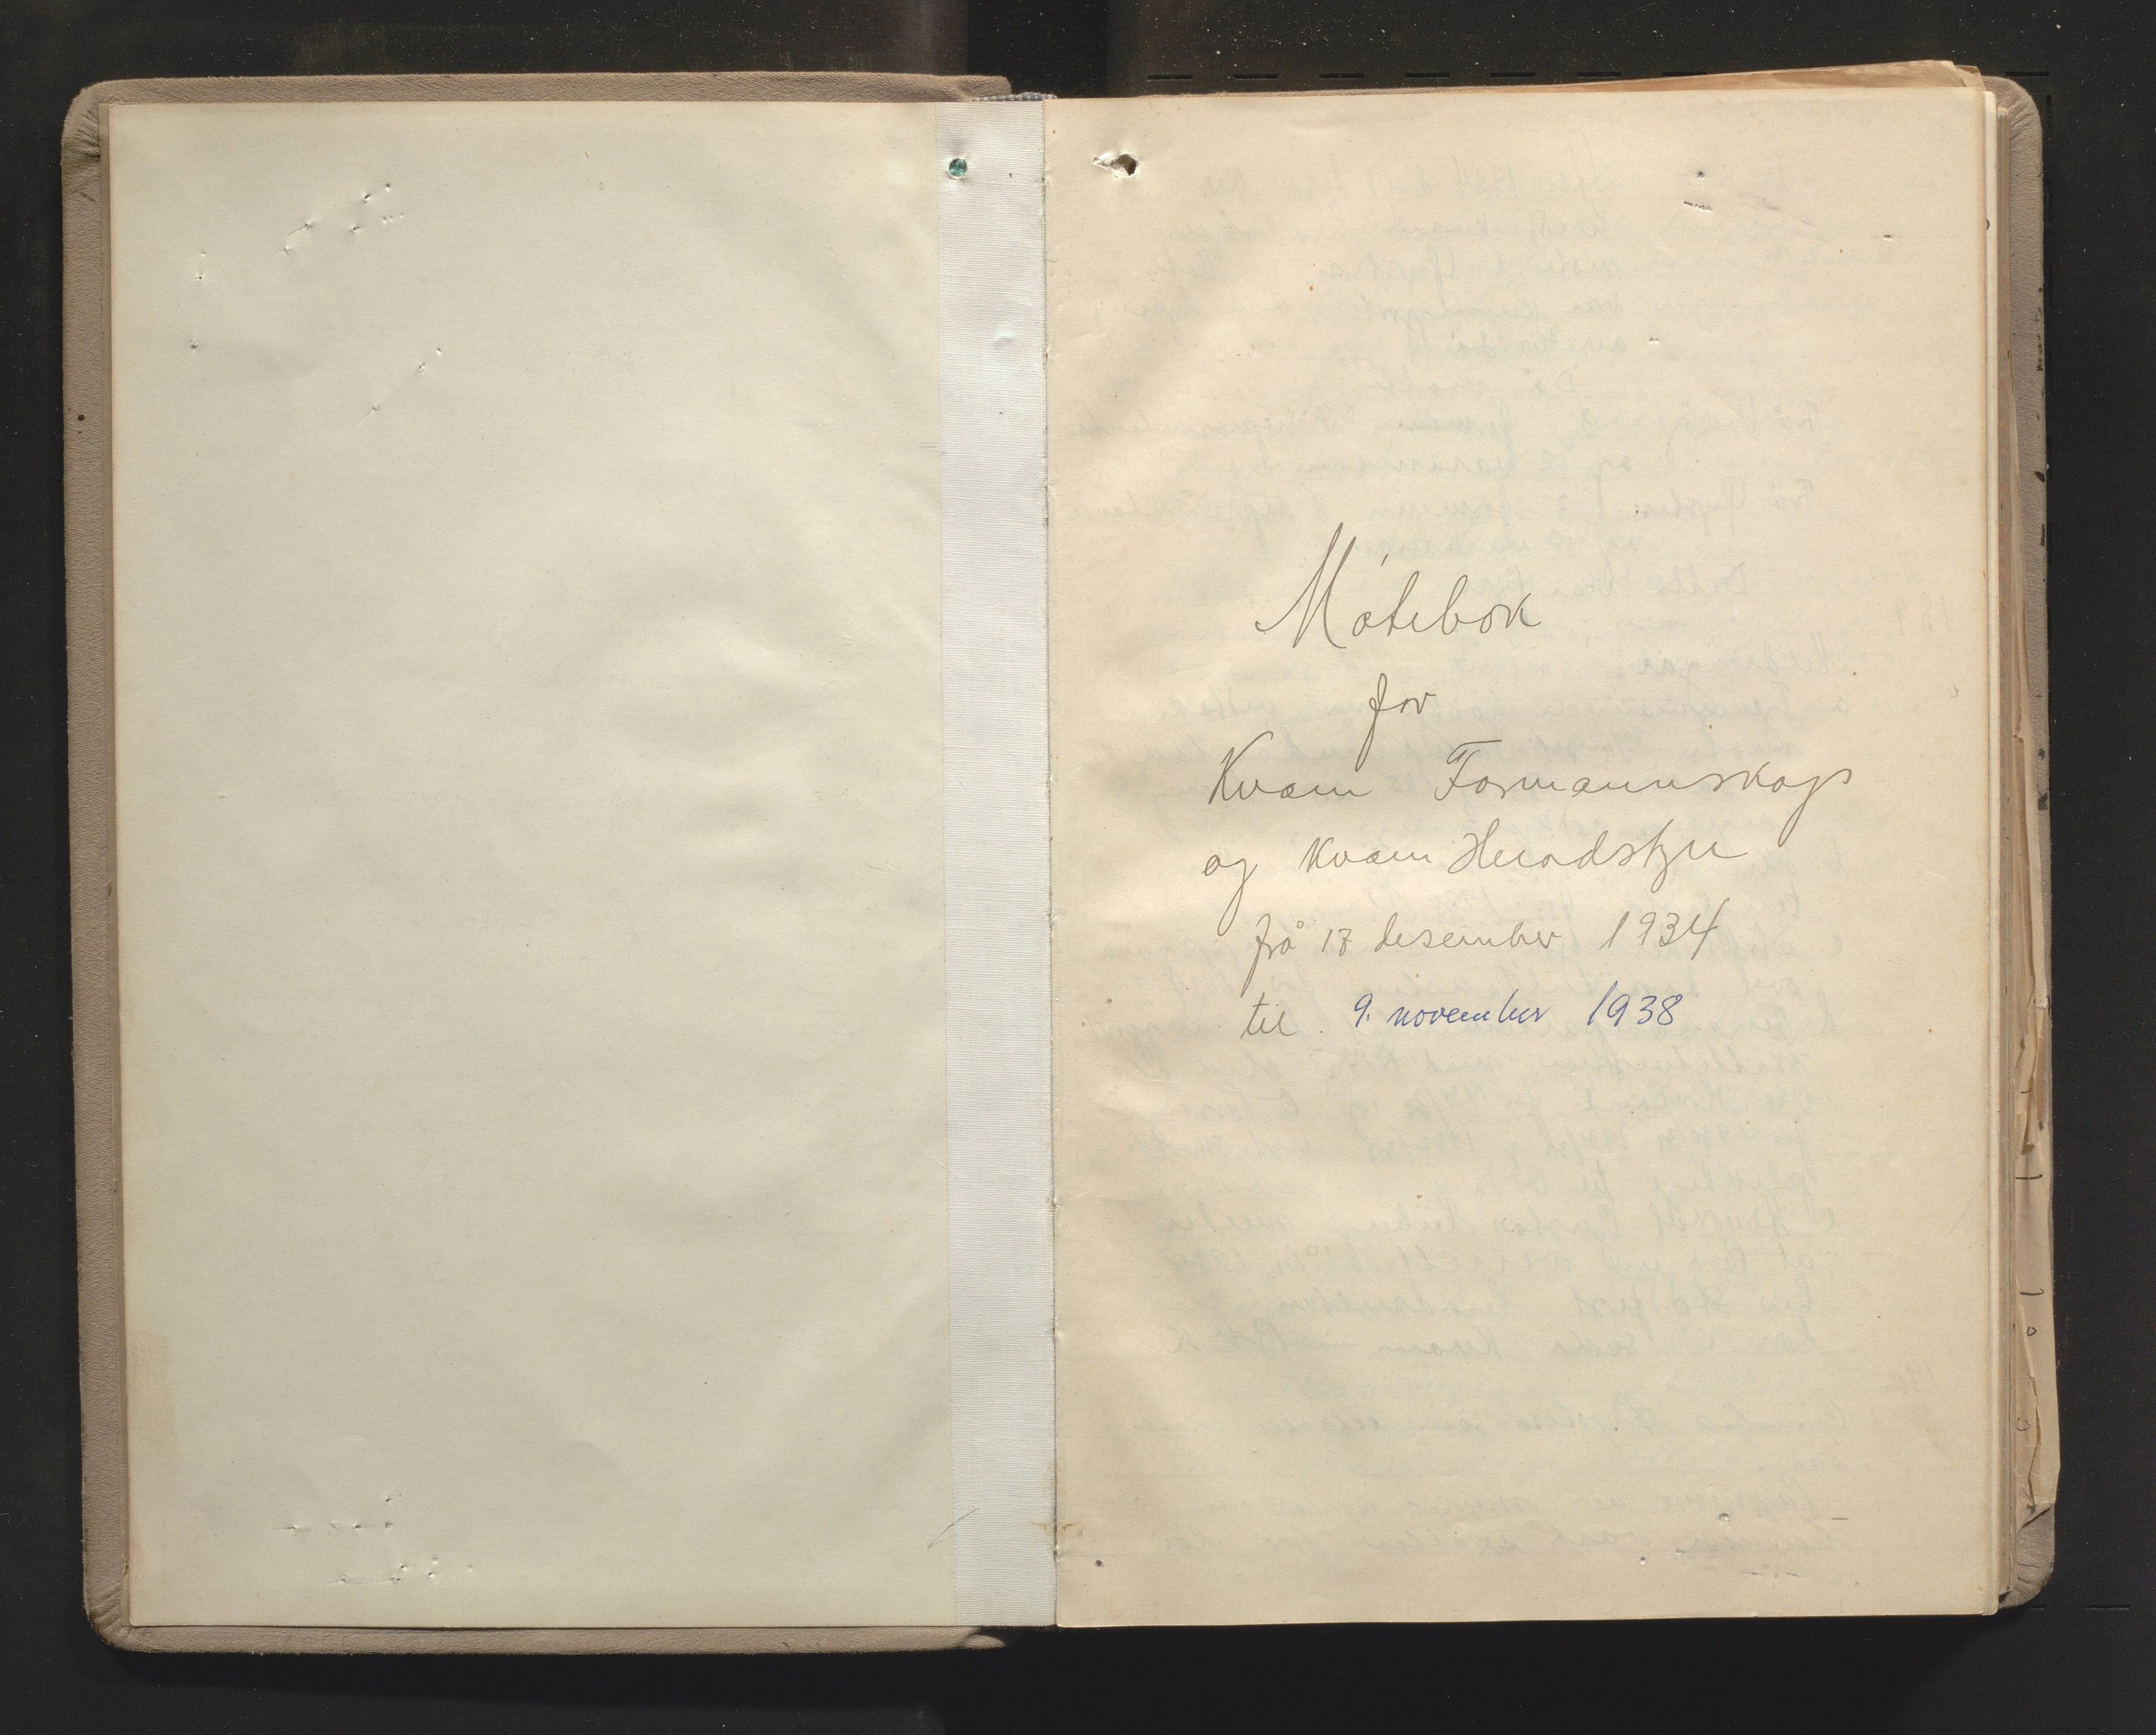 Møtebok
for
Kvam Formannskap
og Kvam Heradstyre
frå 17 desember 1934
til 9. november 1938